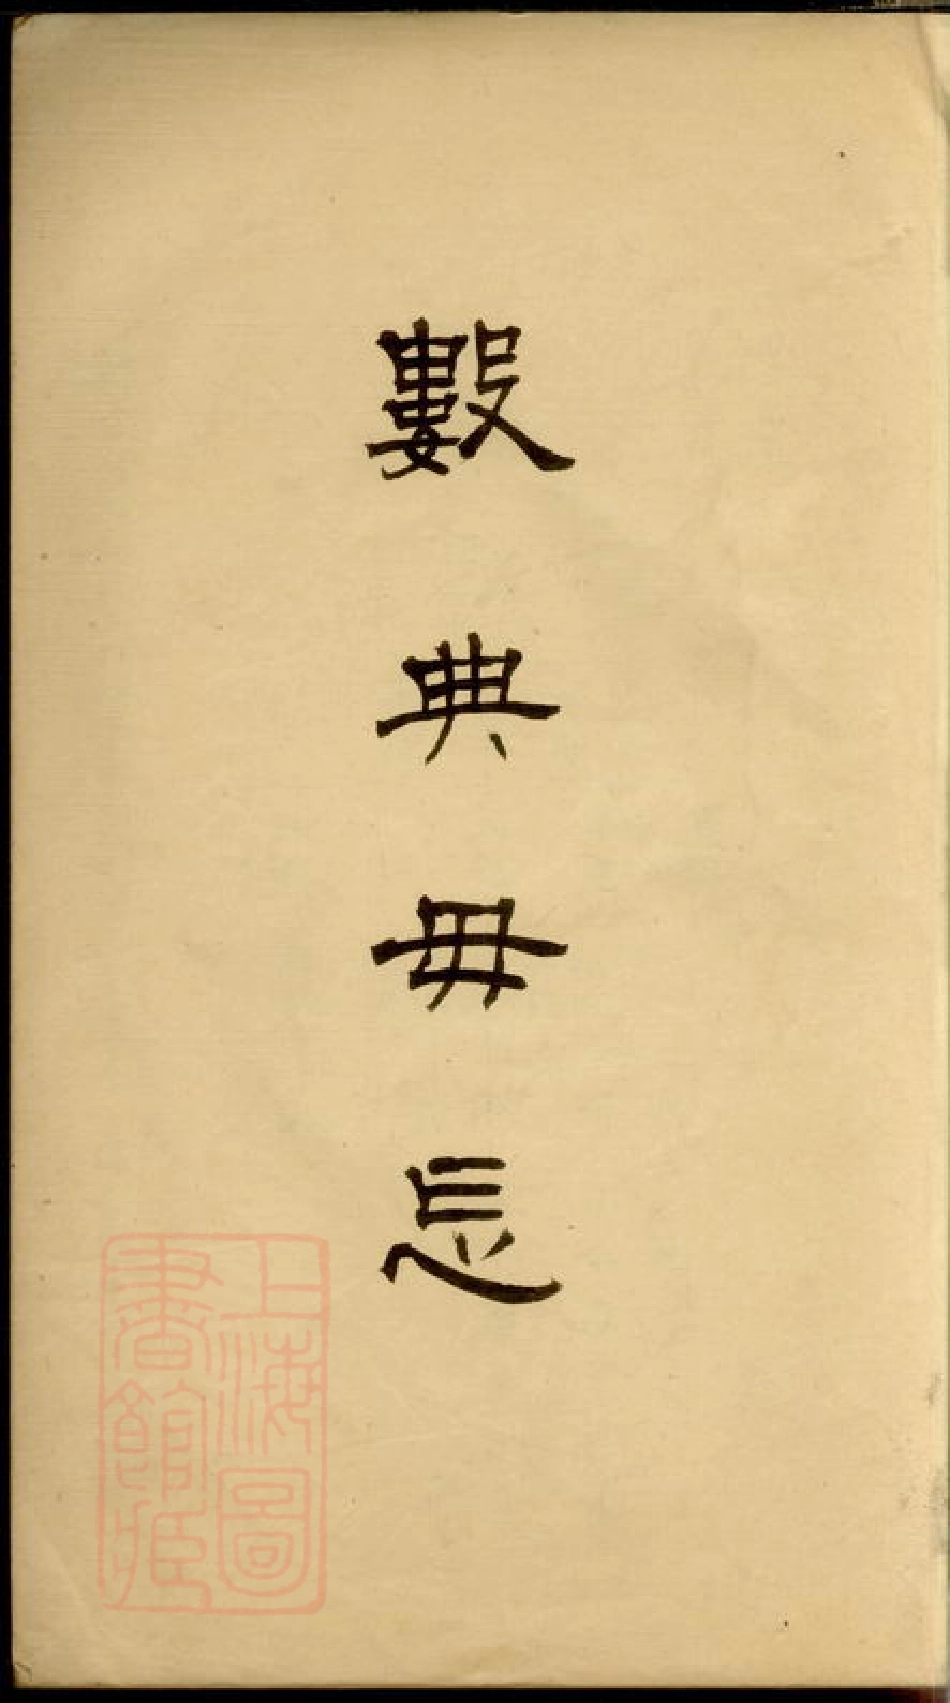 數典毋忘
上海圖
書館藏